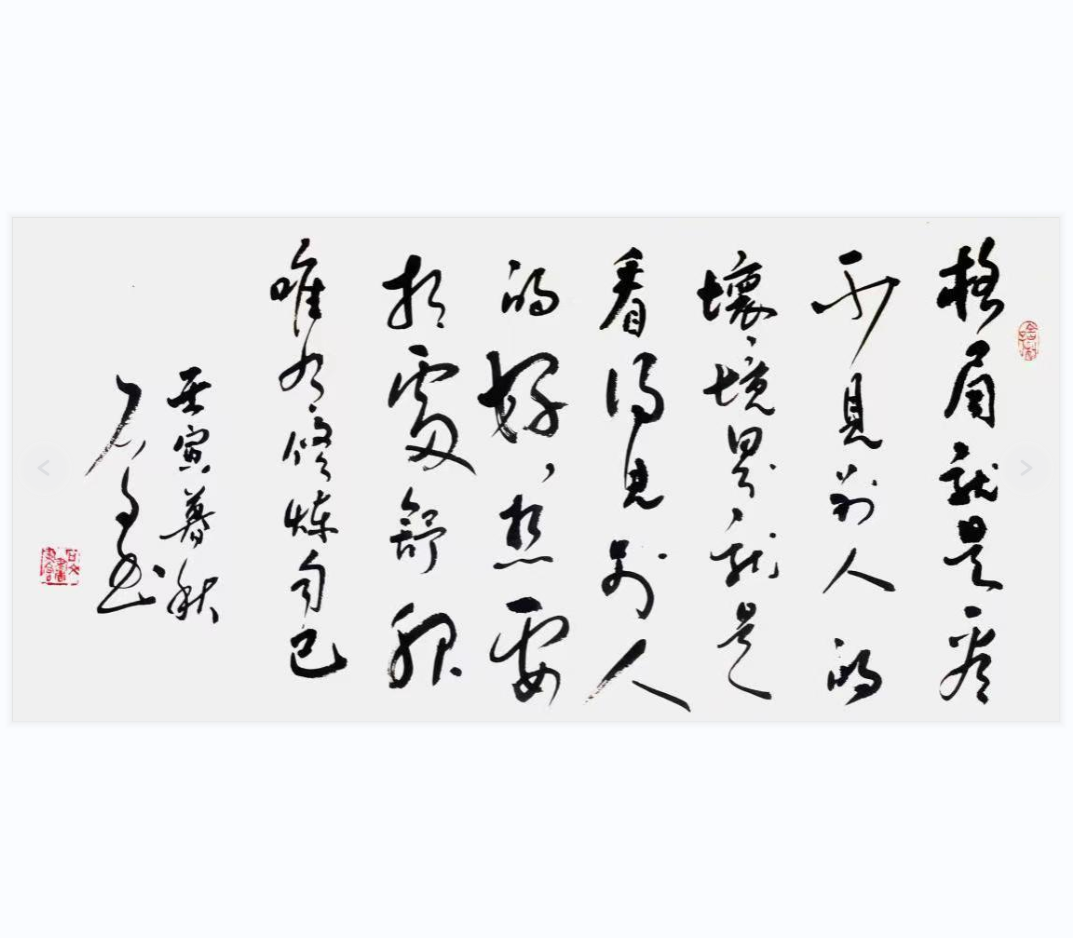 格局就是看
不見别人的
壞境界就是
看得見别人
的好，想要
相處舒服
唯有修炼自己
壬寅暮秋